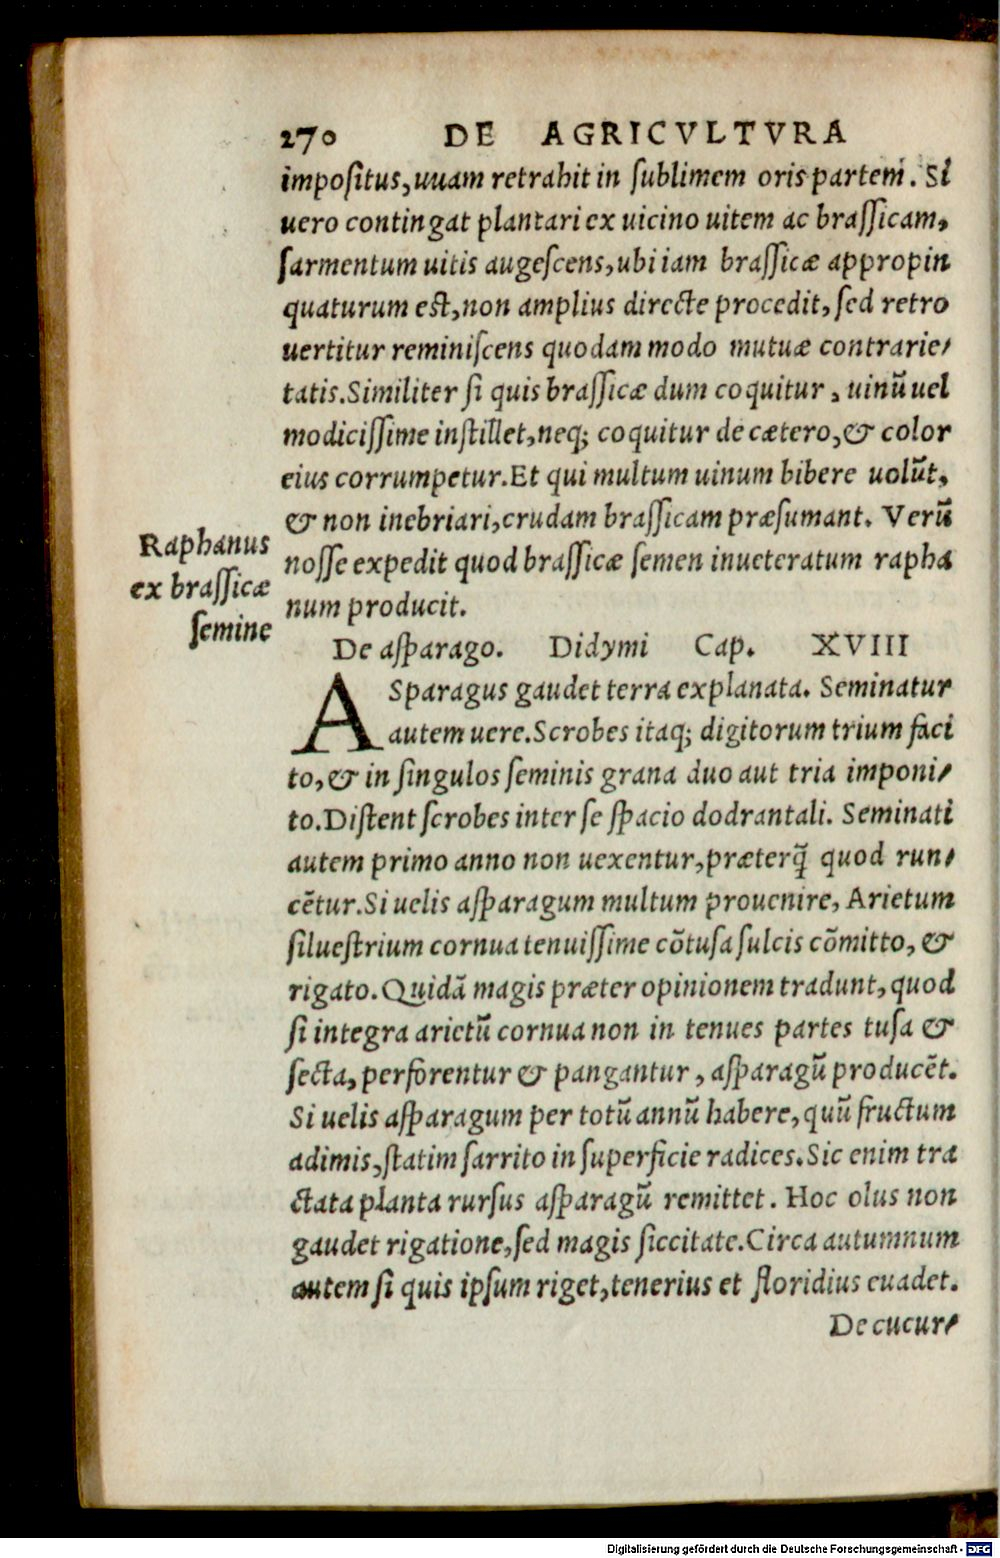 270 DE AGRICVLTVRA
impoſitus,uuam retrahit in ſublimem oris partem. Si
uero contingat plantari ex uicino uitem ac braſſicam,
ſarmentum uitis augeſcens,ubi iam braſſicæ appropin
quaturum eſt,non amplius directe procedit,ſed retro
uertitur reminiſcens quodam modo mutuæ contrarie⸗
tatis.Similiter ſi quis braſſicæ dum coquitur , uinũ uel
modiciſſime inſtillet,neq; coquitur de cætero,& color
eius corrumpetur.Et qui multum uinum bibere uolũt,
& non inebriari,crudam braſſicam præſumant. Verũ
noſſe expedit quod braſſicæ ſemen inueteratum rapha
num producit.
Raphanus
ex braſſicæ
ſemine
De aſparago. Didymi Cap. XVIII
ASparagus gaudet terra explanata. Seminatur
autem uere.Scrobes itaq; digitorum trium faci
to,& in ſingulos ſeminis grana duo aut tria imponi⸗
to.Diſtent ſcrobes inter ſe ſpacio dodrantali. Seminati
autem primo anno non uexentur,præterq̃ quod run⸗
cẽtur.Si uelis aſparagum multum prouenire, Arietum
ſilueſtrium cornua tenuiſſime cõtuſa ſulcis cõmitto, &
rigato.Quidã magis præter opinionem tradunt,quod
ſi integra arietũ cornua non in tenues partes tuſa &
ſecta,perforentur & pangantur , aſparagũ producẽt.
Si uelis aſparagum per totũ annũ habere,quũ fructum
adimis,ſtatim ſarrito in ſuperficie radices.Sic enim tra
ctata planta rurſus aſparagũ remittet. Hoc olus non
gaudet rigatione,ſed magis ſiccitate.Circa autumnum
autem ſi quis ipſum riget,tenerius et floridius euadet.
De cucur⸗
Digitalisierung gefördert durch die Deutsche Forschungsgemeinschaft - DFG